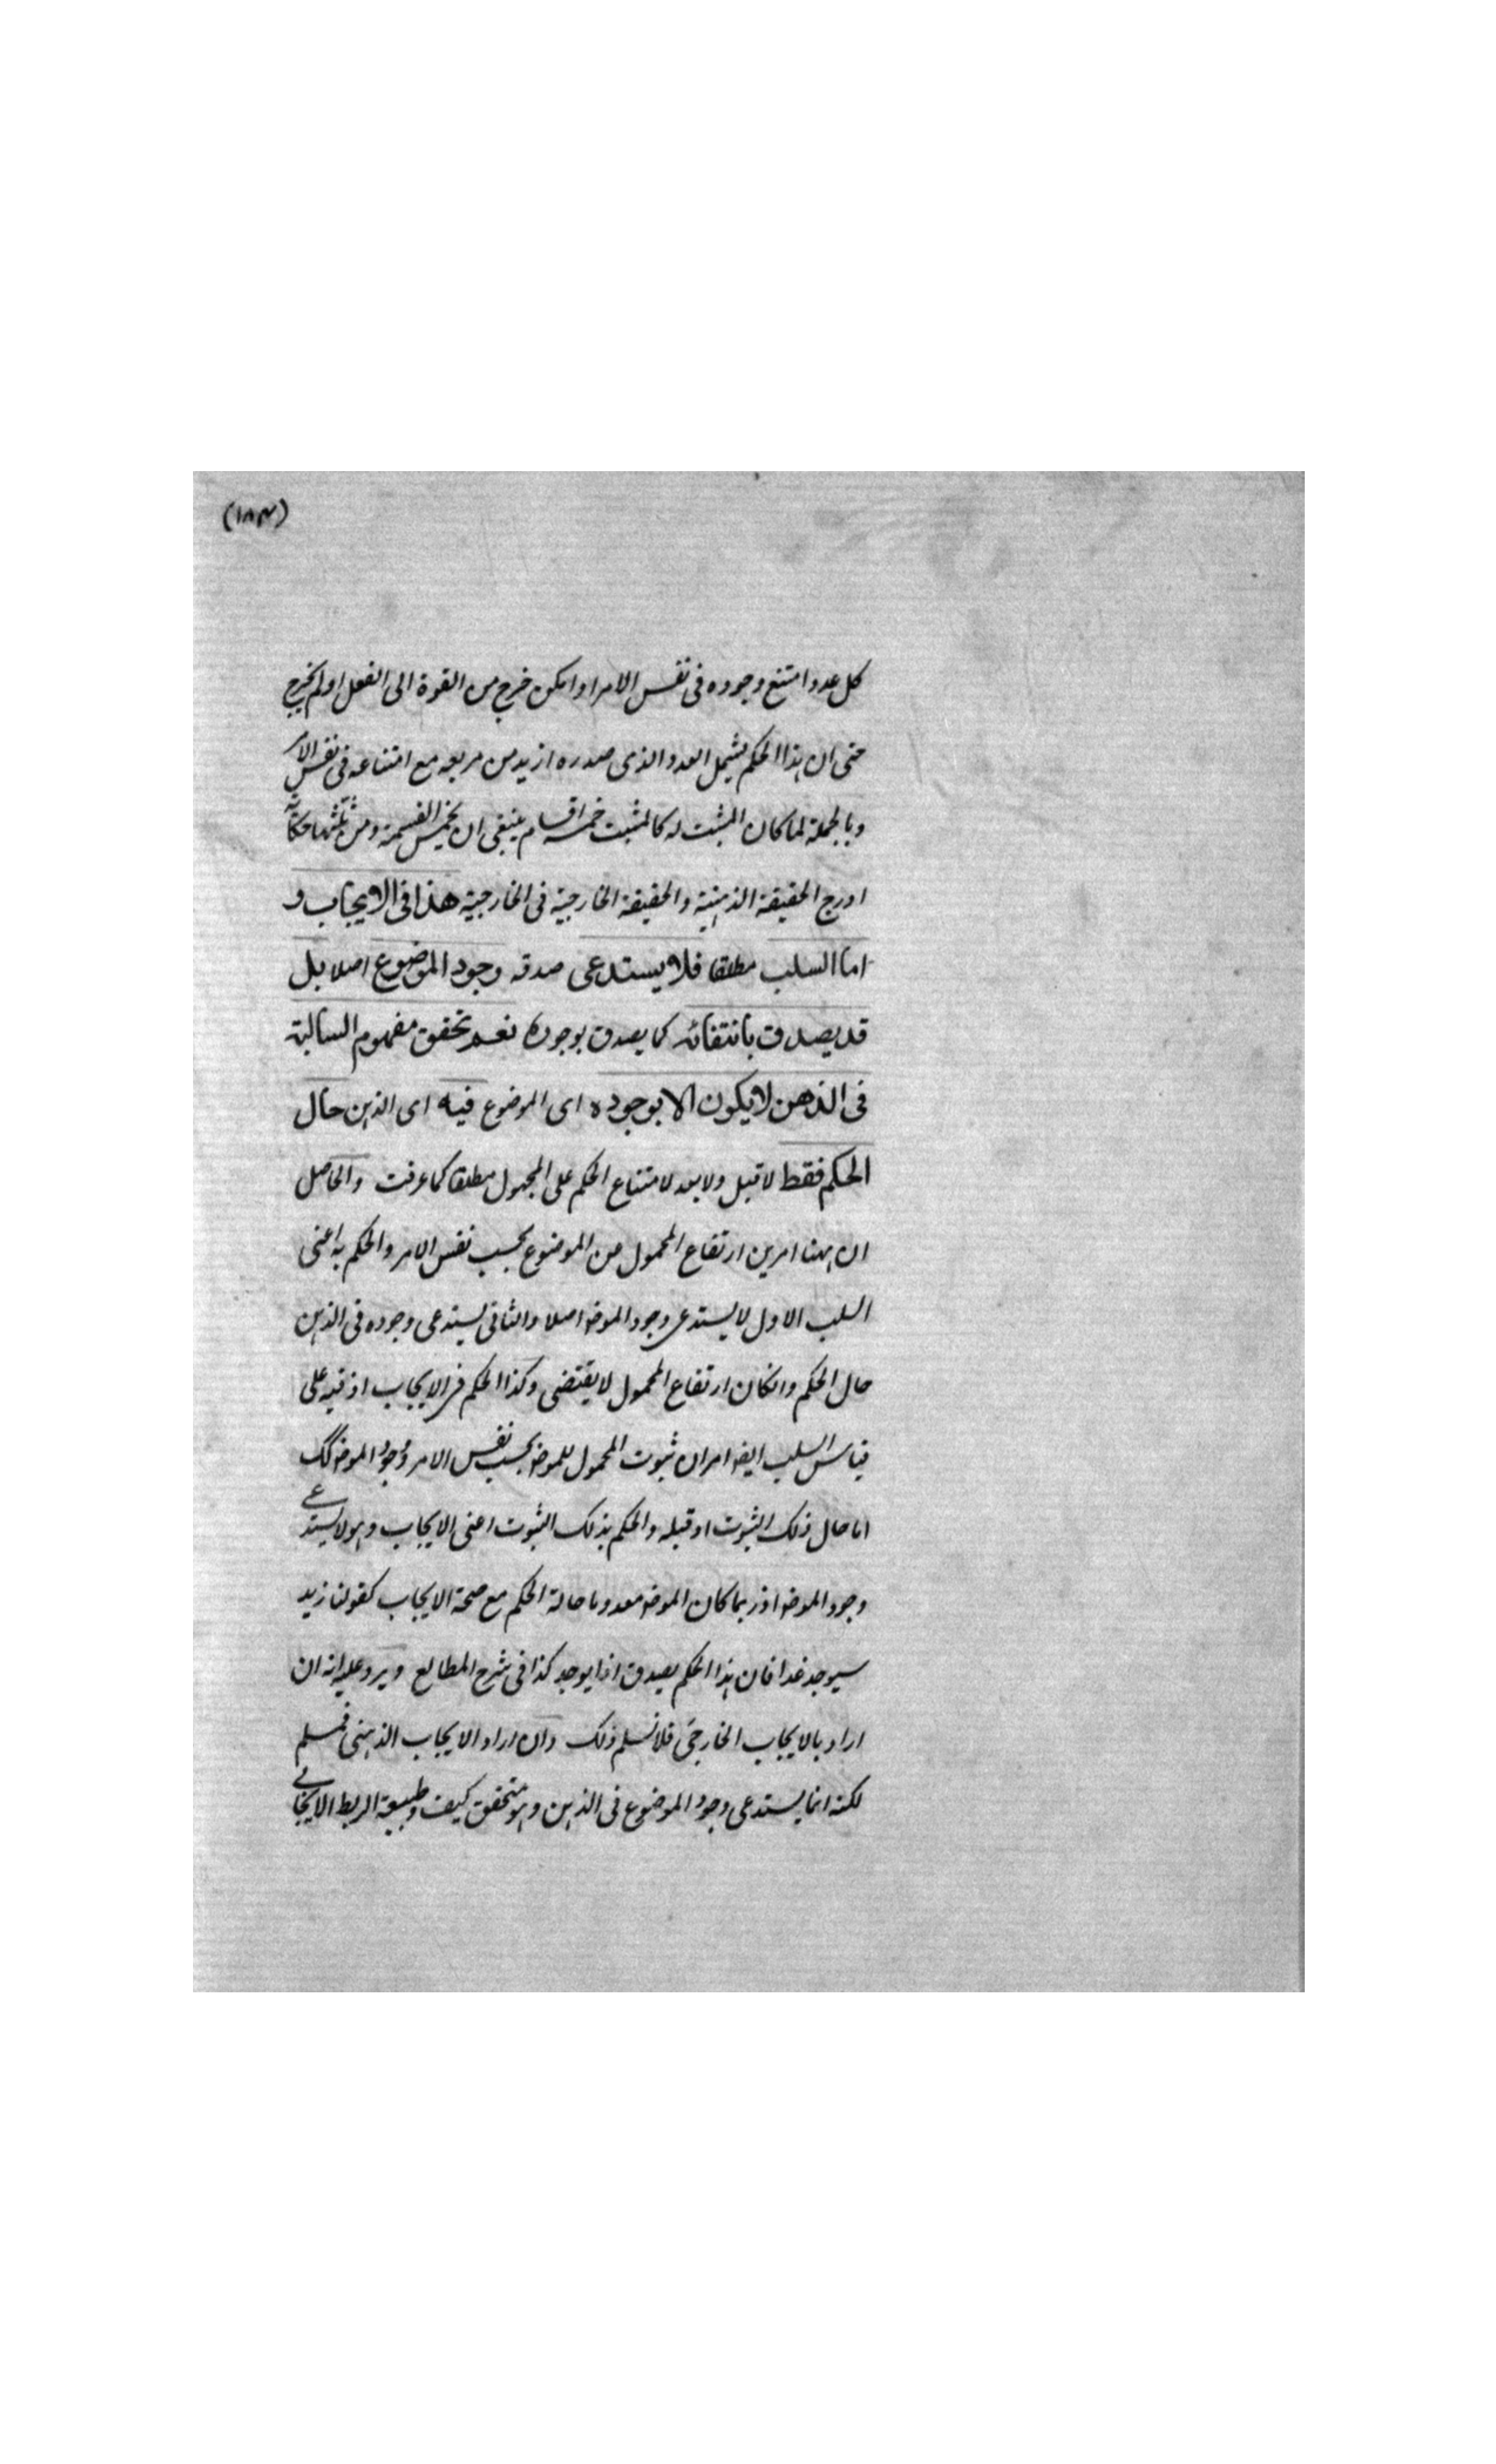 (١٨٣)
كل عدد امتنع وجوده فى نفس الامر او امكن خرج من القوة الى الفعل او لم يخرج
حتى ان هذا الحكم يشمل العدد الذى صدره ازيد من مربعه مع امتناعه فى نفس الامر
وبالجملة لما كان المثبت له كالمثبت خمسة اقسام ينبغى ان يخمس القسمة ومن ثلثها
ادرج الحقيقة الذهنية والحقيقة الخارجية فى الخارجية هذا فى الايجاب و
اما السلب مطلقا فلا يستدعى صدقه وجود الموضوع اصلا بل
قد يصدق بانتفائه كما يصدق بوجوده نعم تحقق مفهوم السالبة
فى الذهن لا يكون الا بوجوده اى الموضوع فيه اى الذهن حال
الحكم فقط لا قبل ولا بعد لامتناع الحكم على المجهول مطلقا كما عرفت والحاصل
ان ههنا امرين ارتفاع المحمول من الموضوع بحسب نفس الامر والحكم به اعنى
السلب الاول لا يستدعى وجود الموضو اصلا والثانى يستدعى وجوده فى الذهن
حال الحكم وانكان ارتفاع المحمول لا يقتضى وكذا الحكم فى الايجاب اذ فيه على
قياس السلب ايضا امران ثبوت المحمول للموضو بحسب نفس الامر وجود الموضو كك
اما حال ذلك الثبوت او قبله والحكم بذلك الثبوت اعنى الايجاب وهو لا يستدعى
وجود الموضو اذ ربما كان الموضو معدوما حالة الحكم مع صحة الايجاب كقولنا زيد
سيوجد غدا فان هذا الحكم يصدق اذا يوجد كذا فى شرح المطالع ويرد عليه انه ان
اراد بالايجاب الخارجى فلا نسلم ذلك وان اراد الايجاب الذهنى فمسلم
لكنه انما يستدعى وجود الموضوع فى الذهن وهو متحقق كيف وطبيعة الربط الايجابى